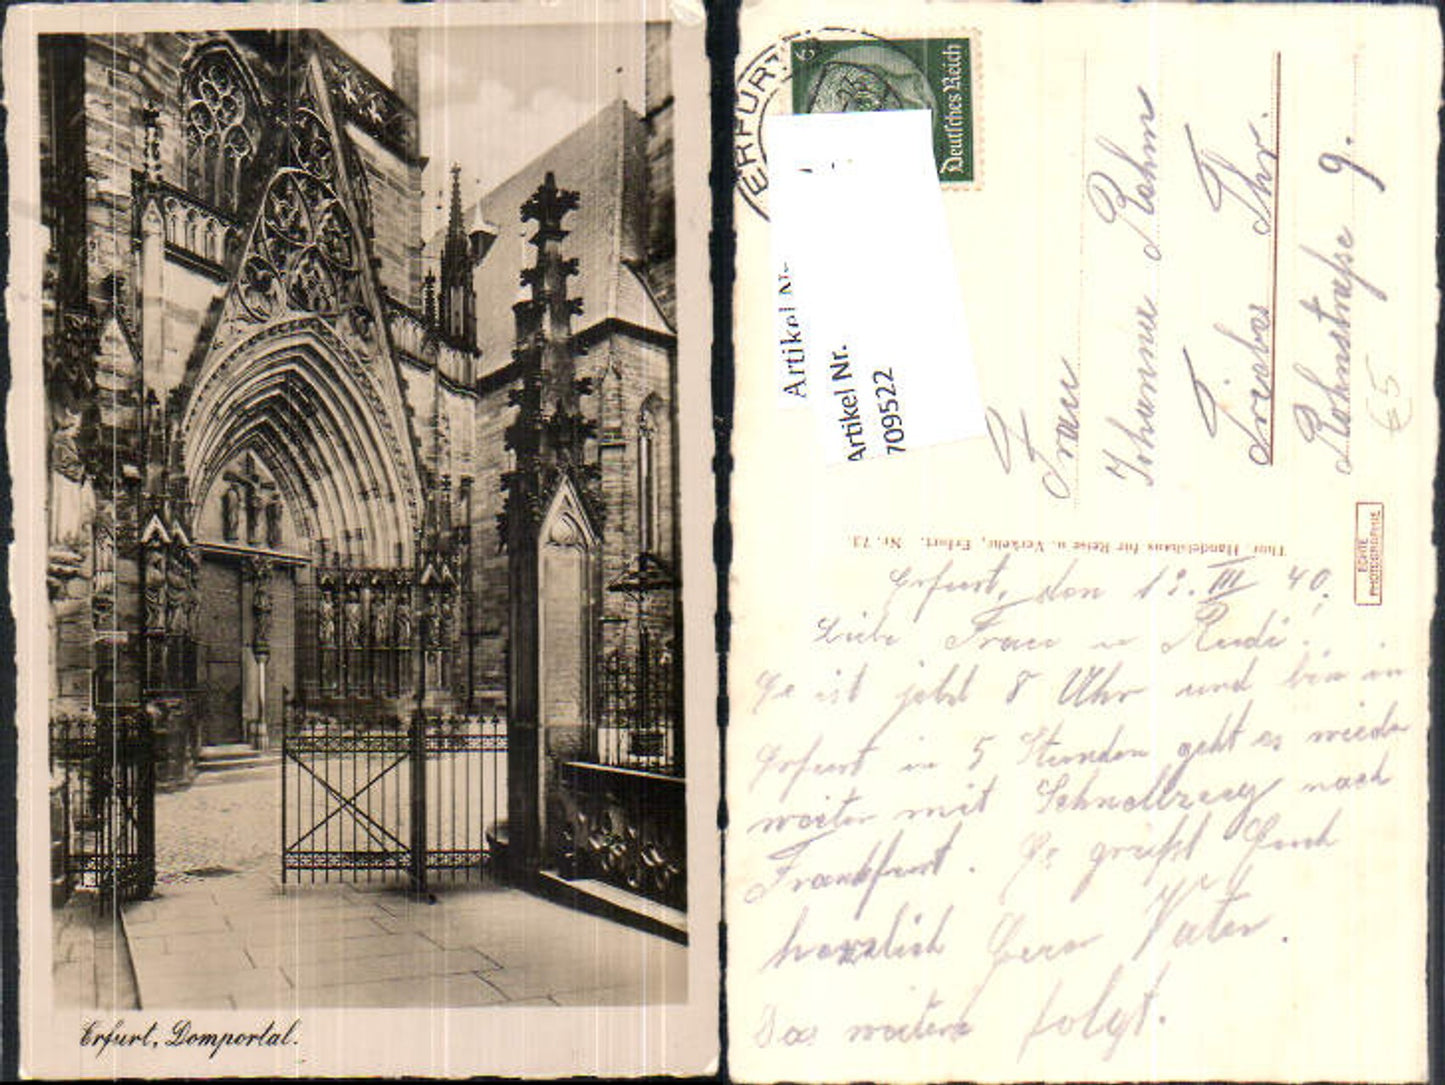 Erfurt, Domportal.
ERFURT
6
Deutsches Reich
Artikel Nr.
Artikel Nr.
709522
Frau
Johanna Rohm
Triebes Thr.
Rohnstraße 9.
€5
ECHTE
PHOTOGRAPHIE
Thür. Handelshaus für Reise u. Verkehr, Erfurt. Nr. 73.
Erfurt, den III 40.
Liebe Frau u Rudi!
Es ist jetzt 8 Uhr und bin in
Erfurt in 5 Stunden geht es wieder
weiter mit Schnellzug nach
Frankfurt. Es grüßt Euch
herzlich Euer Vater.
Das weitere folgt.